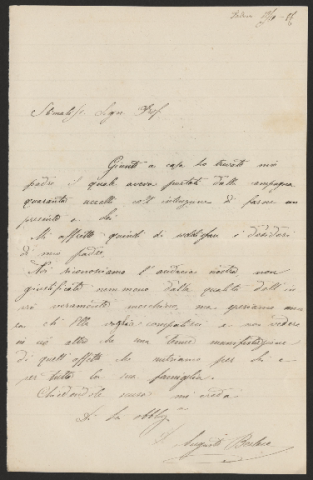 Stimatiss. Sign. Prof.
Giunto a casa ho trovato mio
padre il quale aveva portato dalla campagna
quaranta uccelli coll'intenzione di farne un
presente a Lei
Mi affretto quindi di soddisfare i desideri
di mio padre.
Noi riconosciamo l'audacia nostra non
giustificata nemmeno dalla qualità dell'in
vio veramente meschino, ma speriamo anco
ra che Ella voglia compatirci e non vedere
in ciò altro che una tenue manifestazione
di quell'affetto che nutriamo per Lei e
per tutta la sua famiglia.
Chiedendole scusa mi creda
Di Lei obblig.
Augusto